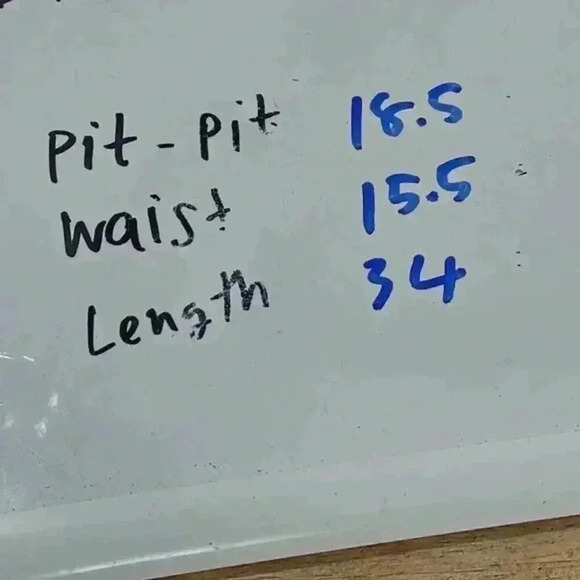 Pit - Pit 18.5
waist 15.5
Length 34